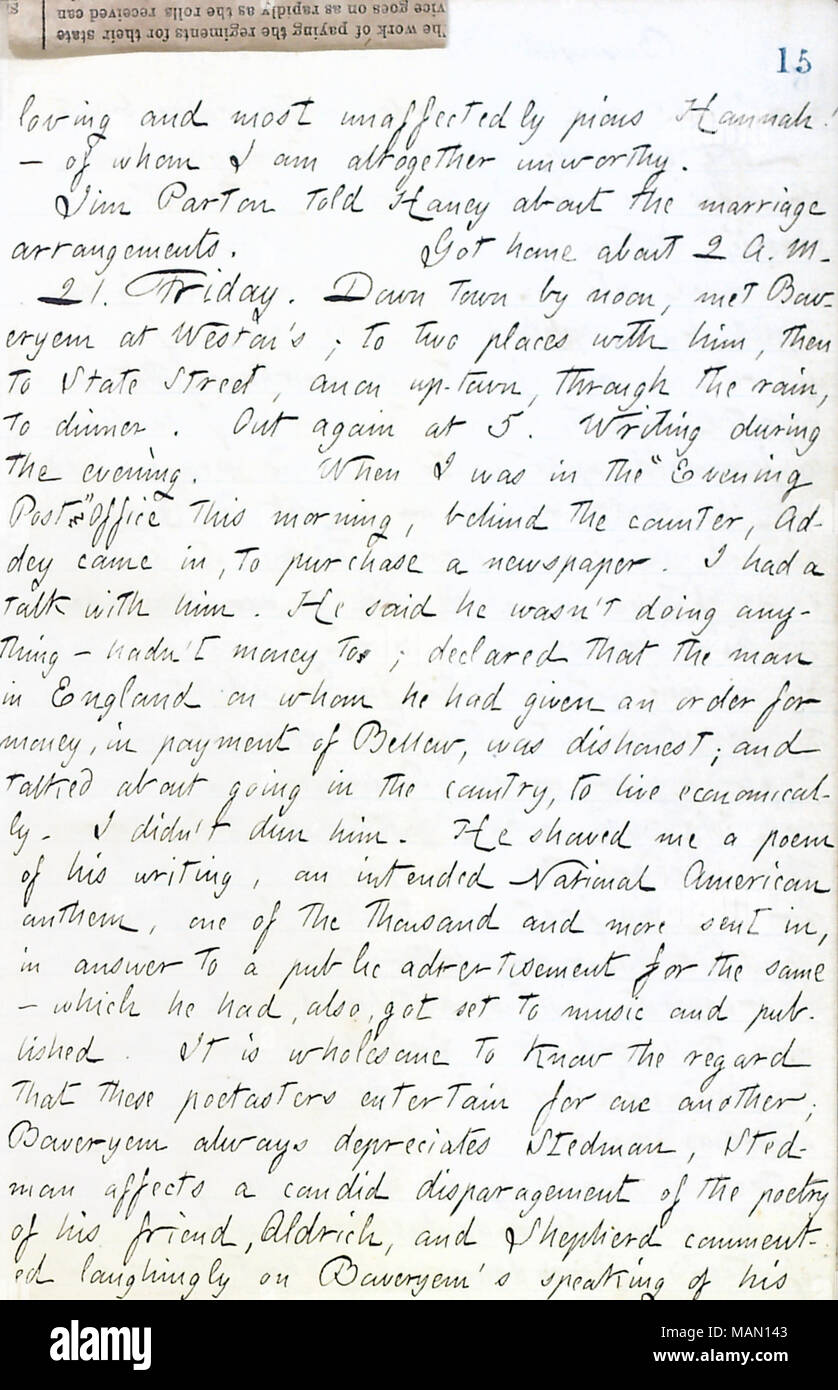 The work of paying the regiments for their state
vice goes on as rapidly as the rolls received can
15
loving and most unaffectedly pious Hannah!
— of whom I am altogether unworthy.
Jim Parton told Haney about the marriage
arrangements. Got home about 2 A.M.
21. Friday. Down town by noon, met Bow-
eryem at Weston's; to two places with him, then
to State Street, anon up-town, through the rain,
to dinner. Out again at 5. Writing during
the evening. When I was in the "Evening
Post" Office this morning, behind the counter, Ad-
dey came in, to purchase a newspaper. I had a
talk with him. He said he wasn't doing any-
thing — hadn't money to; declared that the man
in England on whom he had given an order for
money, in payment of Bellew, was dishonest; and
talked about going in the country, to live economical-
ly. I didn't dun him. He showed me a poem
of his writing, an intended National American
anthem, one of the thousand and more sent in,
in answer to a public advertisement for the same
— which he had, also, got set to music and pub-
lished. It is wholesome to know the regard
that these poetasters entertain for one another;
Boweryem always depreciates Stedman, Sted-
man affects a candid disparagement of the poetry
of his friend, Aldrich, and Shepherd comment-
ed laughingly on Boweryem's speaking of his
alamy
Image ID: MAN143
www.alamy.com